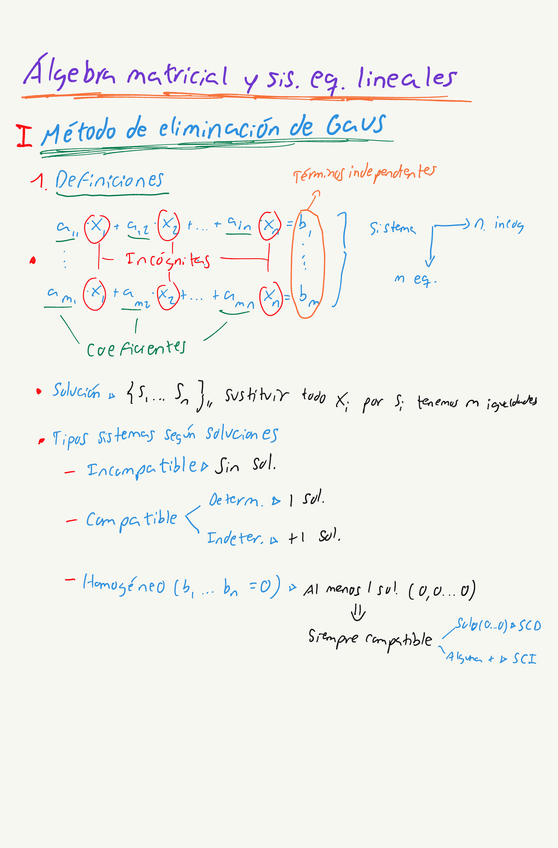 Álgebra matricial y sis. eq. lineales
I Método de eliminación de Gaus
1. Definiciones
Términos independentes
a₁₁ · x₁ + a₁₂ · x₂ + ... + a₁ₙ · xₙ = b₁
sistema → n. incog
Incógnitas
m eq.
aₘ₁ · x₁ + aₘ₂ · x₂ + ... + aₘₙ · xₙ = bₘ
Coeficientes
• Solución ▹ {s₁ ... sₙ},, sustituir todo xᵢ por sᵢ tenemos m igualdades
• Tipos sistemas según soluciones
– Incompatible ▹ Sin sol.
Determ. ▹ 1 sol.
– Compatible
Indeter. ▹ +1 sol.
– Homogéneo (b₁ ... bₙ = 0) ▹ Al menos 1 sol. (0,0...0)
⇓
Siempre compatible
Solo (0..0) ▹ SCD
Alguna + ▹ SCI